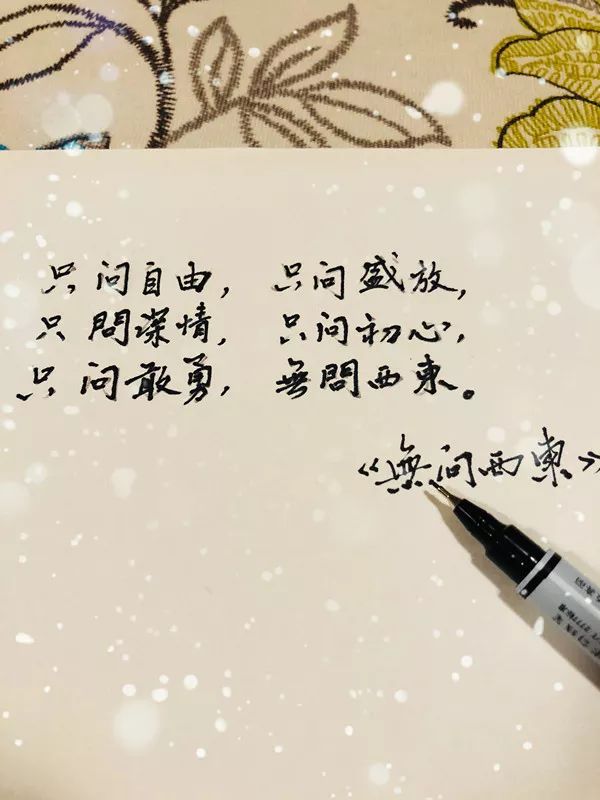 只问自由，只问盛放，
只問深情，只问初心，
只问敢勇，無問西東。
《無问西東》